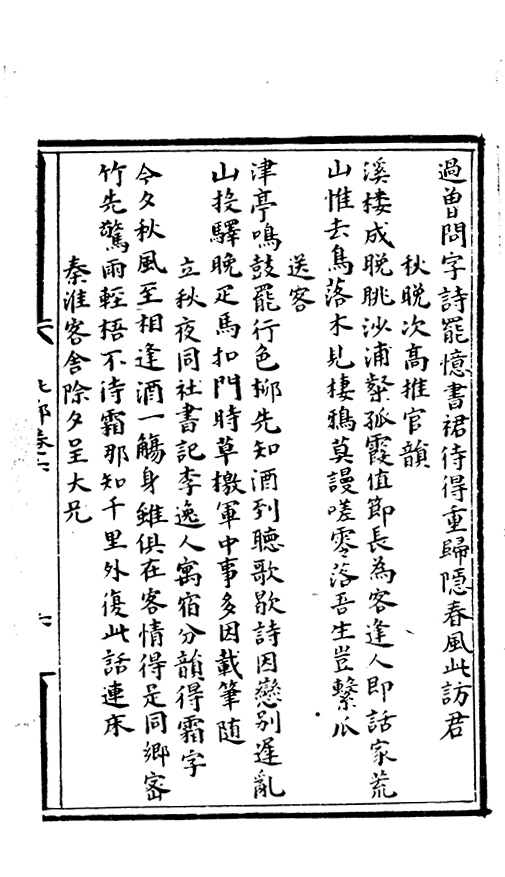 過曾問字詩罷憶書裙待得重歸隱春風此訪君
秋晚次高推官韻
溪樓成晚眺沙浦槳孤霞值節長為客逢人即話家荒
山惟去鳥落木見棲鴉莫謾嗟零落吾生豈繫瓜
送客
津亭鳴鼓罷行色柳先知酒到聽歌歇詩因戀別遲亂
山投驛晚疋馬扣門時草檄軍中事多因載筆隨
立秋夜同社書記李逸人寓宿分韻得霜字
今夕秋風至相逢酒一觴身雖俱在客情得是同鄉密
竹先驚雨輕梧不待霜那知千里外復此話連床
秦淮客舍除夕呈大兄
卷六
六